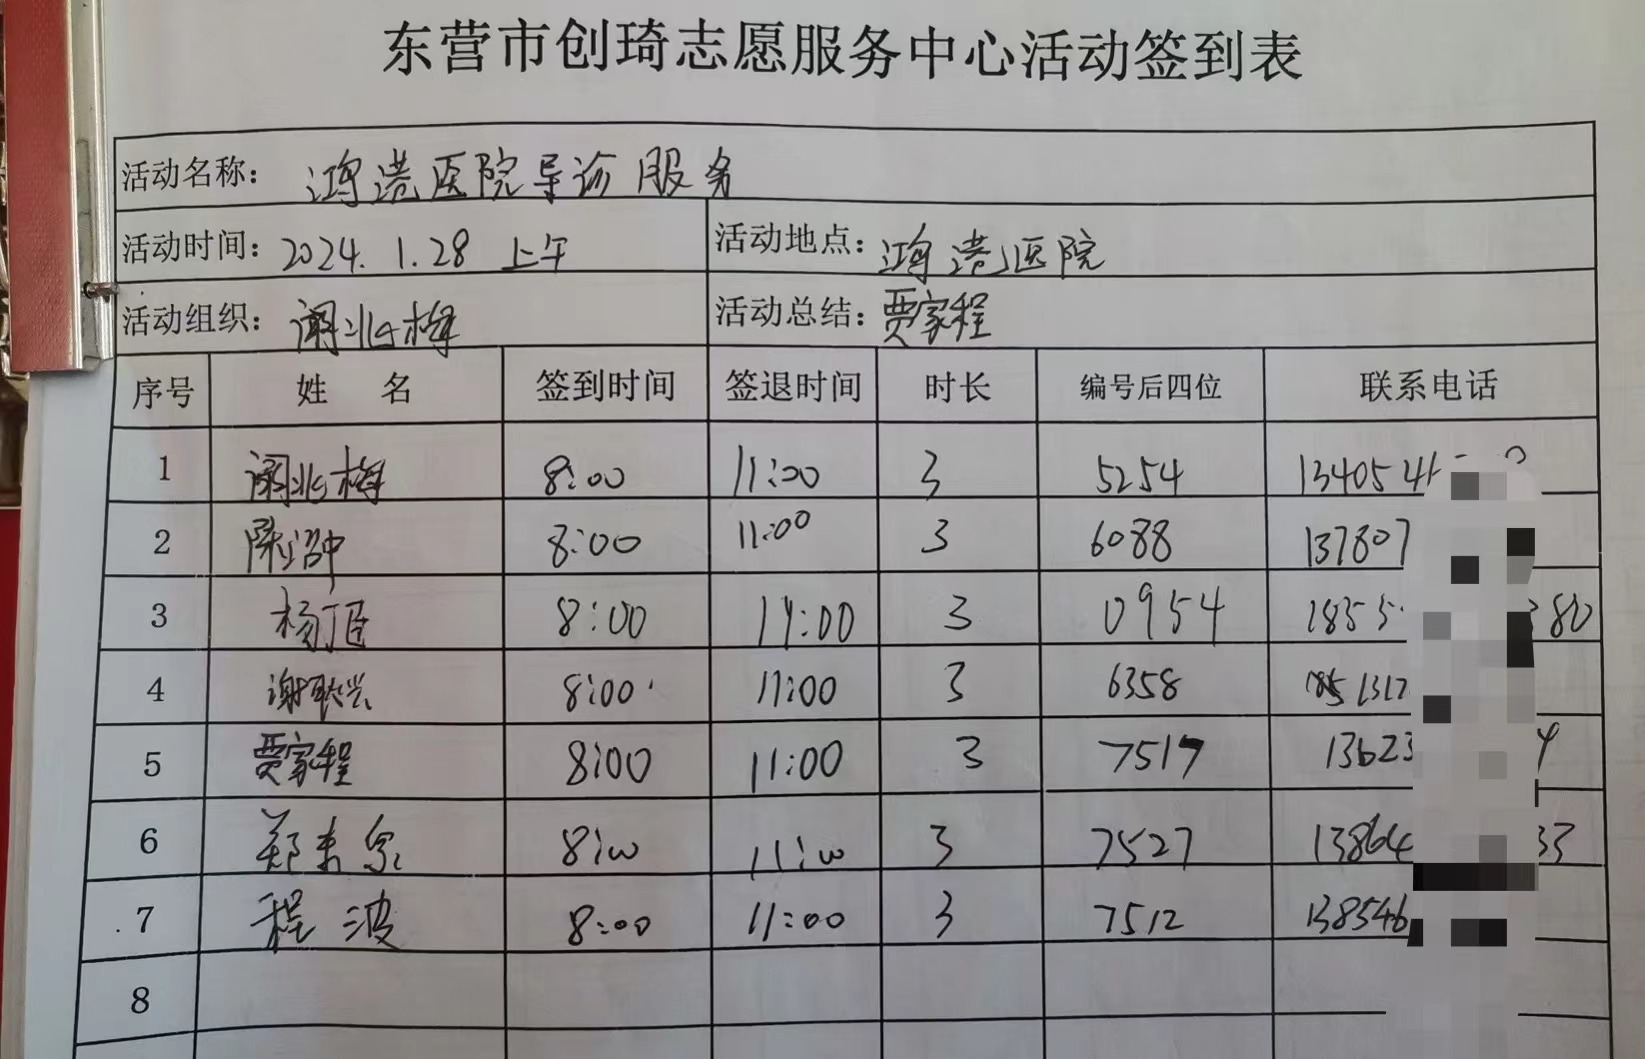 东营市创琦志愿服务中心活动签到表
活动名称： 鸿港医院导诊服务
活动时间：2024.1.28 上午 活动地点：鸿港医院
活动组织： 活动总结：贾家程
序号 姓 名 签到时间 签退时间 时长 编号后四位 联系电话
1 8:00 11:00 3 5254 1340541
2 8:00 11:00 3 6088 137807
3 8:00 3 0954 1855 380
4 8:00 11:00 3 6358 1851317
5 贾家程 8:00 11:00 3 7517 13623 4
6 8:00 11:00 3 7527 13864 33
7 程波 8:00 11:00 3 7512 138546
8